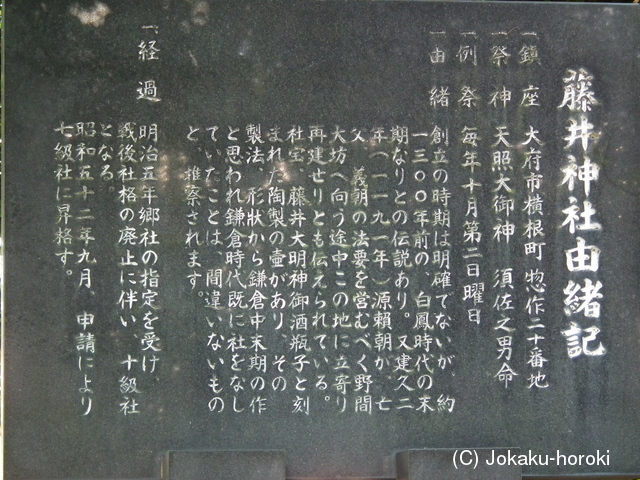 藤井神社由緒記
一鎮座 大府市横根町惣作二十番地
一祭神 天照大御神 須佐之男命
一例祭 毎年十月第二日曜日
一由緒 創立の時期は明確でないが、約
一三〇〇年前の、白鳳時代の末
期なりとの伝説あり。又建久二
年(一一九一年)源頼朝が、亡
父 義朝の法要を営むべく野間
大坊へ向う途中この地に立寄り
再建せりとも伝えられている。
社宝、藤井大明神御酒瓶子と刻
まれた陶製の壷があり、その
製法、形状から鎌倉中末期の作
と思われ鎌倉時代既に社をなし
ていたことは、間違いないもの
と、推察されます。
一経過 明治五年郷社の指定を受け、
戦後社格の廃止に伴い 十級社
となる。
昭和五十二年九月、申請により
七級社に昇格す。
(C) Jokaku-horoki